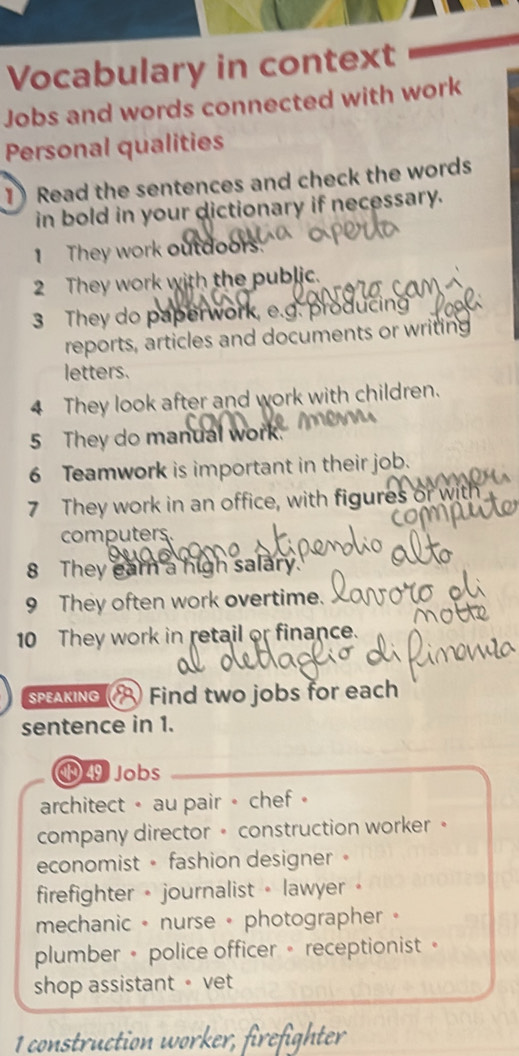 Vocabulary in context
Jobs and words connected with work
Personal qualities
1 Read the sentences and check the words
in bold in your dictionary if necessary.
al aria aperta
1 They work outdoors.
2 They work with the public.
ufficio lavoro con i
3 They do paperwork, e.g. producing fogli
reports, articles and documents or writing
letters.
4 They look after and work with children.
con le mani
5 They do manual work.
6 Teamwork is important in their job.
numeri
7 They work in an office, with figures or with
computers. computer
guadagno stipendio alto
8 They earn a high salary.
9 They often work overtime. lavoro di
notte
10 They work in retail or finance.
al dettaglio di finanza
SPEAKING Find two jobs for each
sentence in 1.
49 Jobs
architect • au pair • chef •
company director • construction worker •
economist • fashion designer •
firefighter • journalist • lawyer •
mechanic • nurse • photographer •
plumber • police officer • receptionist •
shop assistant • vet
1 construction worker, firefighter